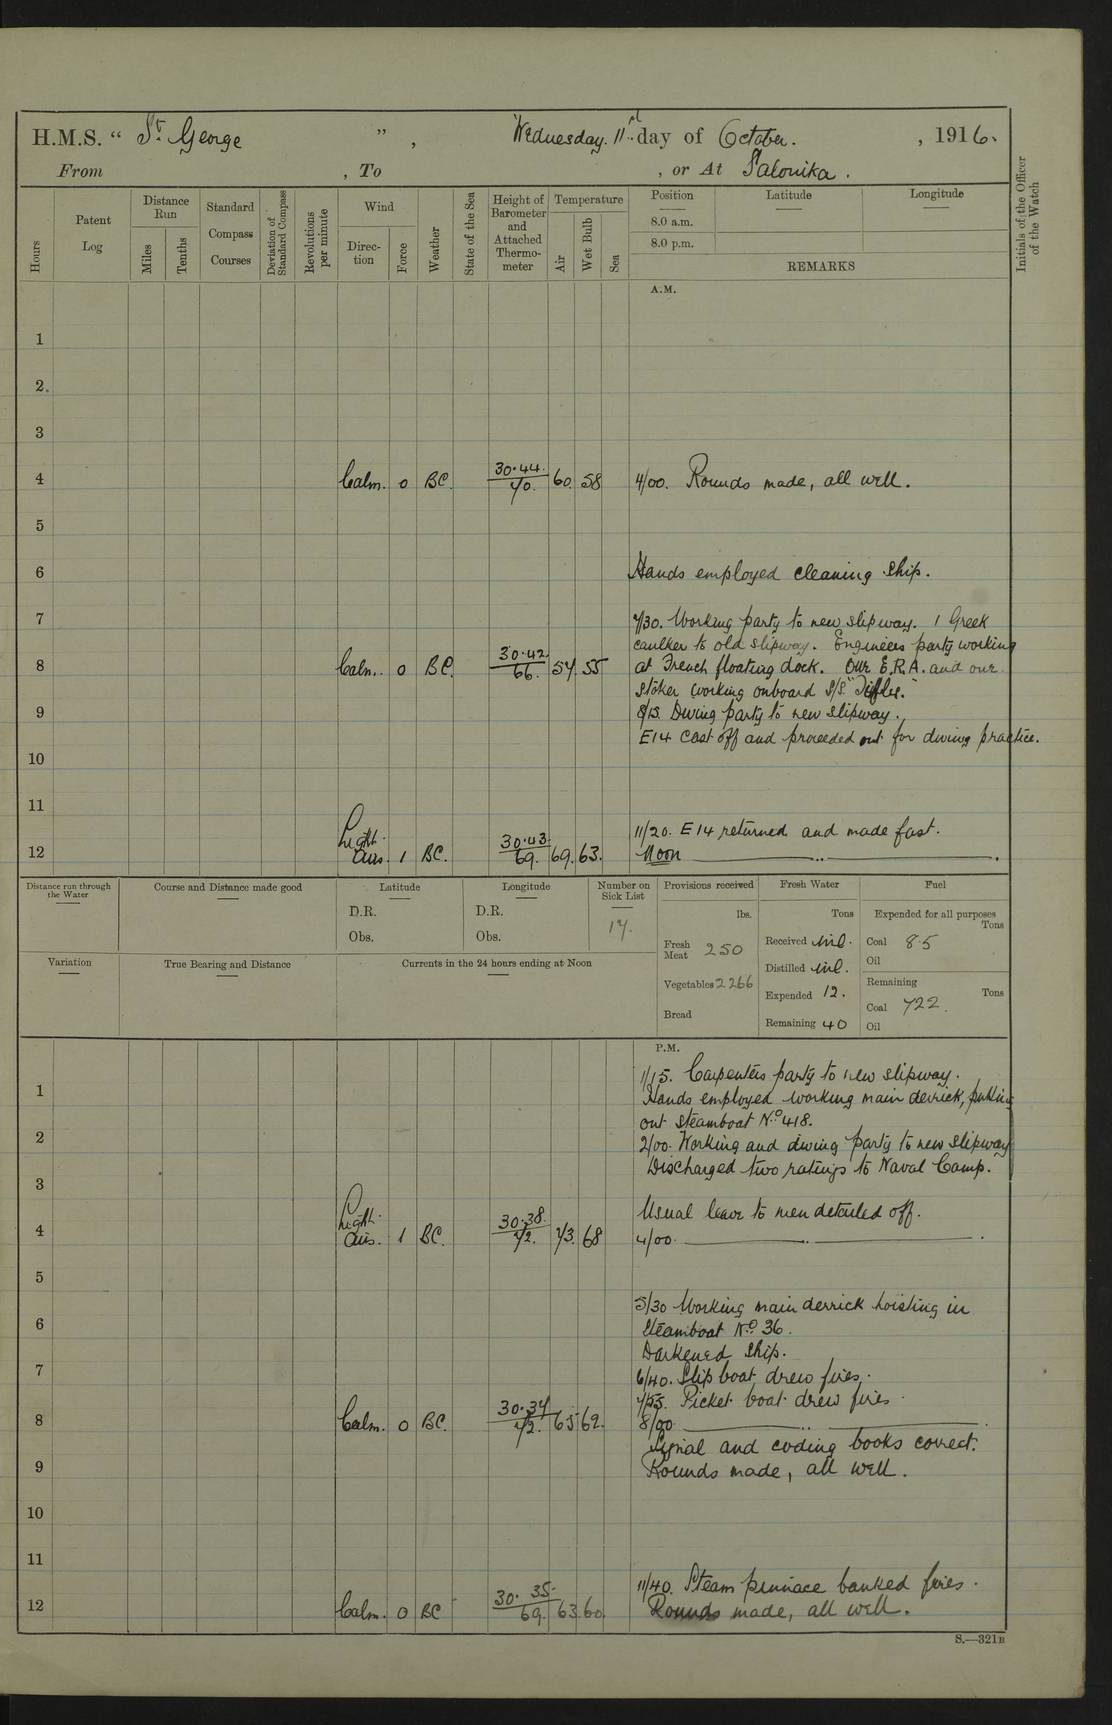 H.M.S. “ St. George ” , Wednesday. 11th day of October. , 1916.
From , To , or At Salonika .
Hours
Patent Log
Distance Run
Miles
Tenths
Standard Compass Courses
Deviation of Standard Compass
Revolutions per minute
Wind
Direction
Force
Weather
State of the Sea
Height of Barometer and Attached Thermometer
Temperature
Air
Wet Bulb
Sea
Position
Latitude
Longitude
8.0 a.m.
8.0 p.m.
REMARKS
Initials of the Officer of the Watch
A.M.
1
2
3
4 Calm. 0 BC. 30.44. 70. 60. 58 4/00. Rounds made, all well.
5
6 Hands employed cleaning ship.
7 7/30. Working party to new slipway. 1 Greek
caulker to old slipway. Engineers party working
8 Calm. 0 BC. 30.42. 66. 57. 55 at French floating dock. One E.R.A. and one
stoker working onboard S/S
9 8/15. Diving party to new slipway.
E14 cast off and proceeded out for diving practice.
10
11
11/20. E14 returned and made fast.
12 Light airs. 1 BC. 30.43. 69. 69. 63. Noon
Distance run through the Water
Course and Distance made good
Latitude
D.R.
Obs.
Longitude
D.R.
Obs.
Number on Sick List
17.
Provisions received
lbs.
Fresh Meat 250
Vegetables 2266
Bread
Fresh Water
Tons
Received Nil.
Distilled Nil.
Expended 12.
Remaining 40
Fuel
Expended for all purposes
Tons
Coal 8.5
Oil
Remaining
Tons
Coal 722.
Oil
Variation
True Bearing and Distance
Currents in the 24 hours ending at Noon
P.M.
1/15. Carpenters party to new slipway.
1 Hands employed working main derrick, putting
out steamboat No. 418.
2 2/00. Working and diving party to new slipway
Discharged two ratings to Naval Camp.
3
Usual leave to men detailed off.
4 Light airs. 1 BC. 30.38. 72. 73. 68 4/00.
5
5/30 Working main derrick hoisting in
6 Steamboat No. 36.
Darkened ship.
7 6/40. Slip boat drew fires.
7/55. Picket boat drew fires
8 Calm. 0 BC. 30.37 72. 65 62. 8/00
Signal and coding books correct.
9 Rounds made, all well.
10
11
11/40. Steam pinnace banked fires.
12 Calm. 0 BC 30.35. 69. 63. 60. Rounds made, all well.
S.—321B